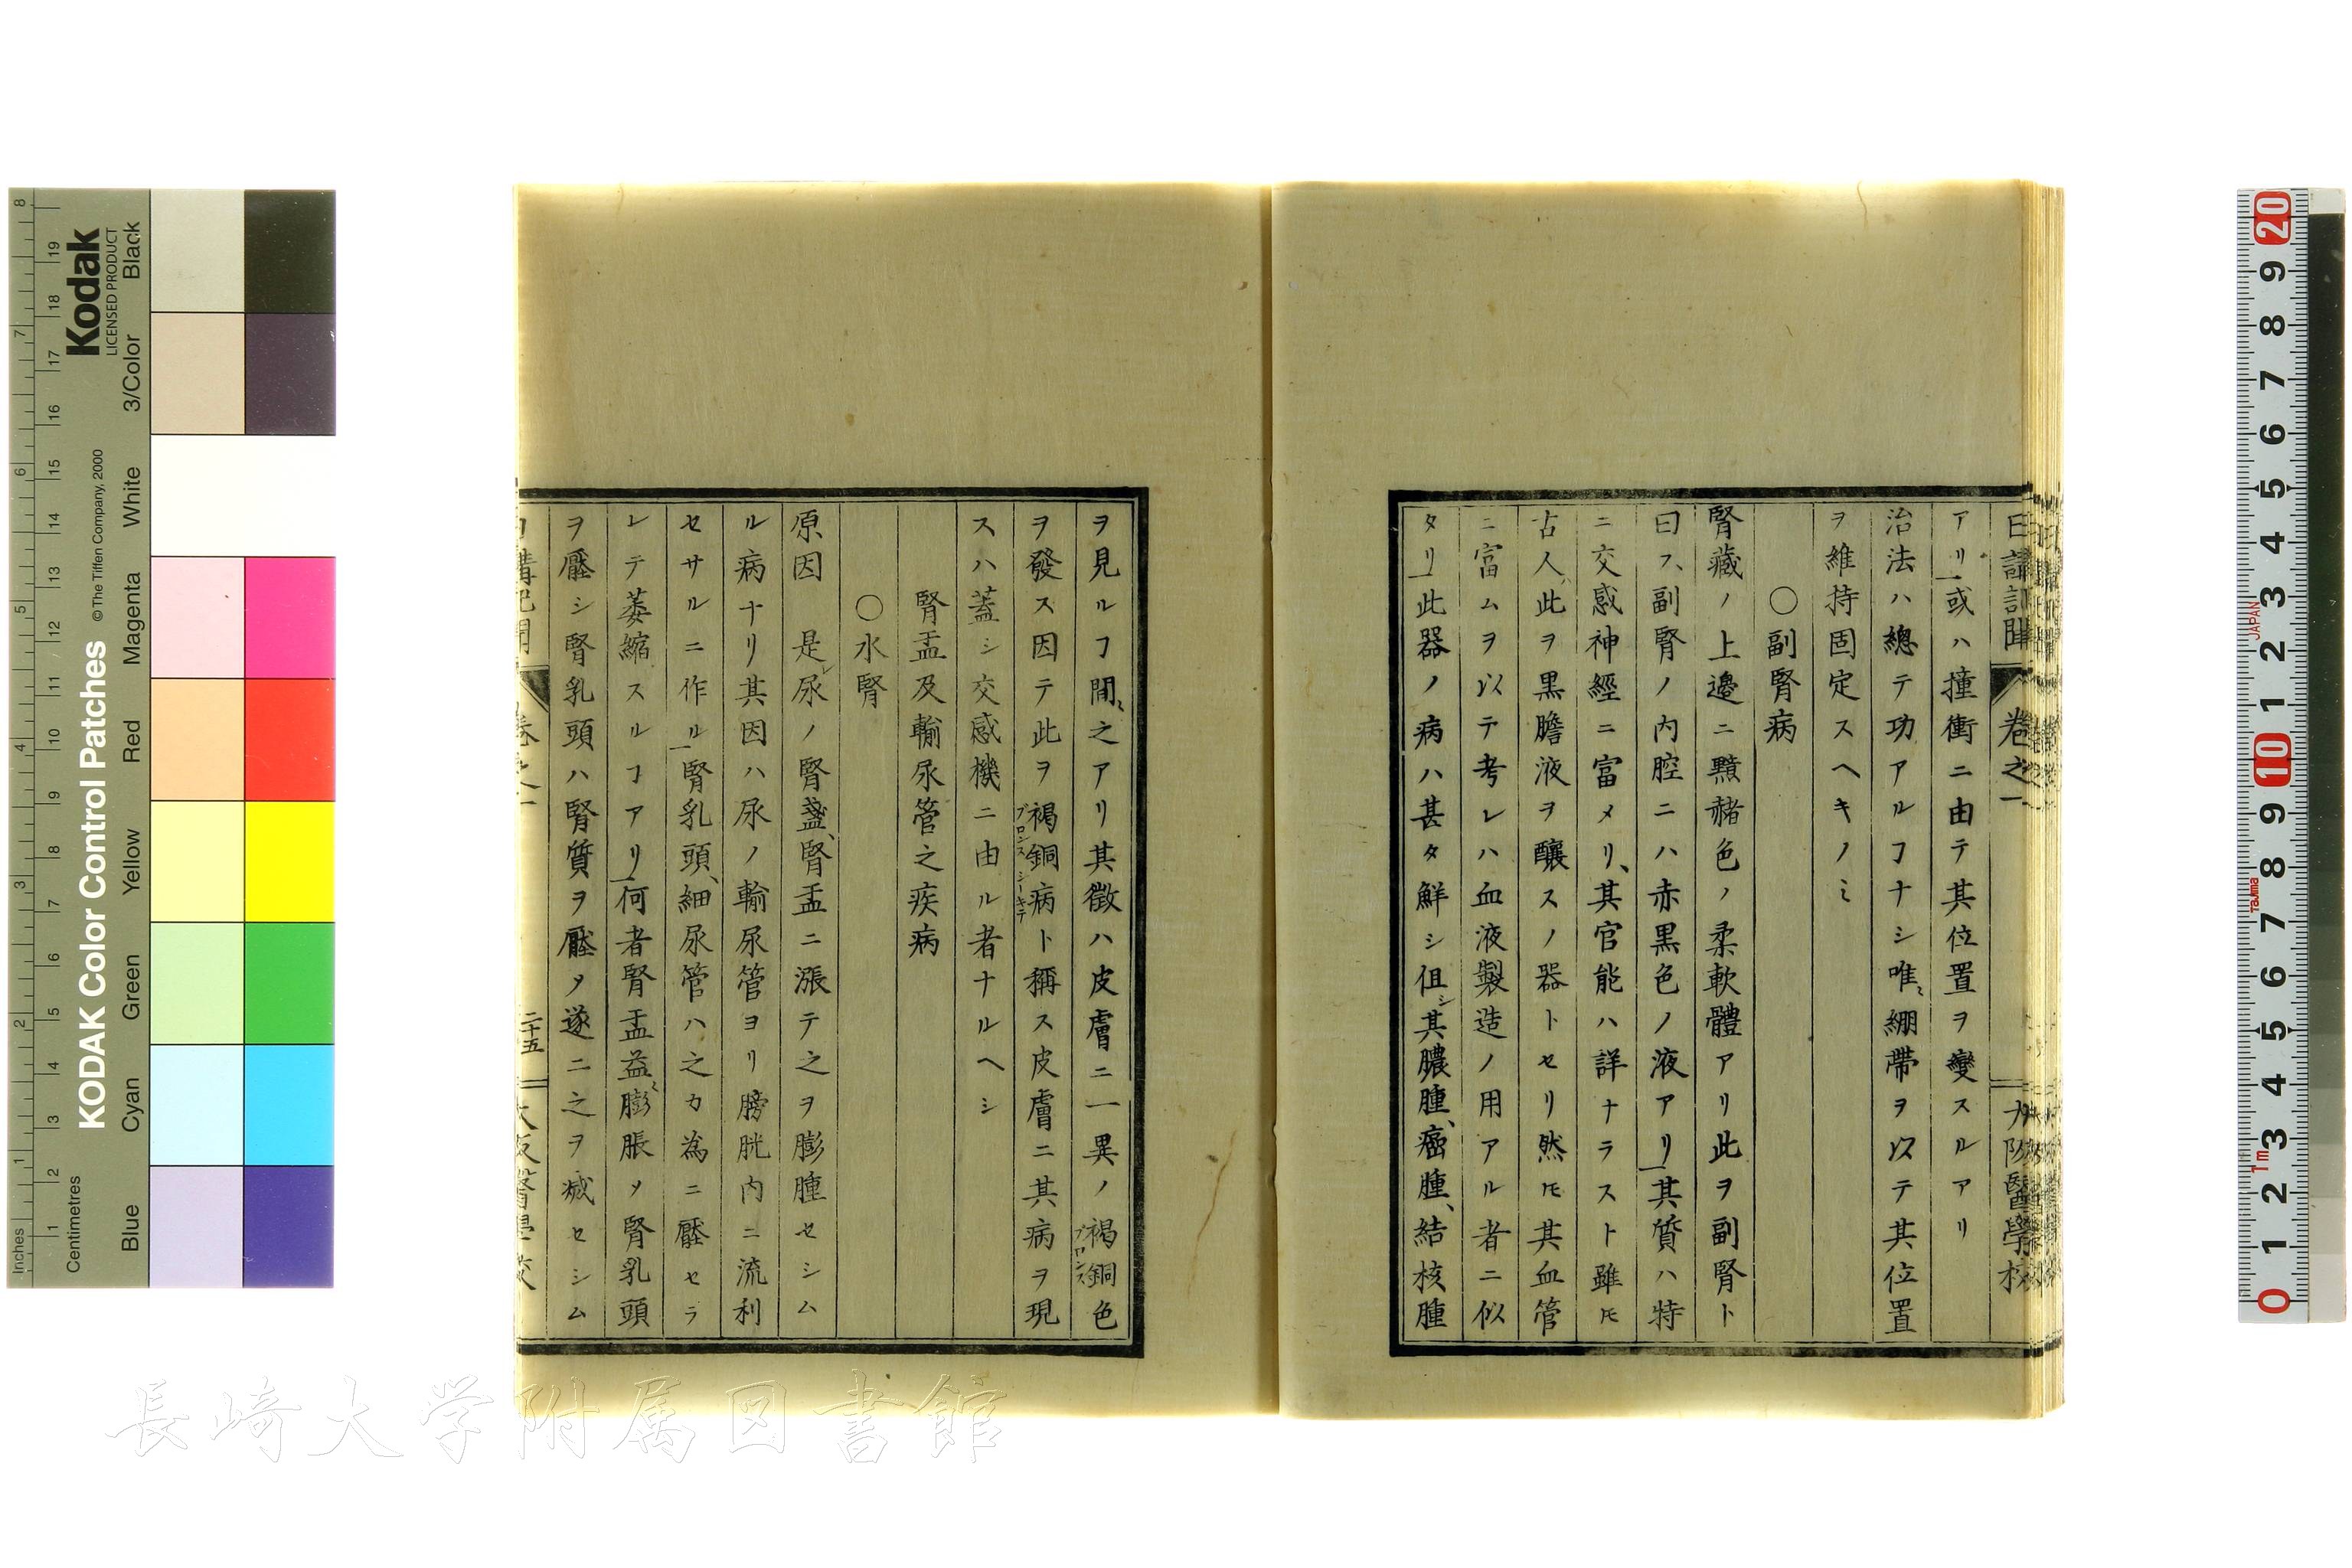 日講記聞 卷之一 大阪醫學校
アリ或ハ撞衝ニ由テ其位置ヲ變スルアリ
治法ハ總テ功アルヿナシ唯〻繃帶ヲ以テ其位置
ヲ維持固定スヘキノミ
○副腎病
腎藏ノ上邊ニ黯赭色ノ柔軟體アリ此ヲ副腎ト
曰フ、副腎ノ内腔ニハ赤黒色ノ液アリ其質ハ特
ニ交感神經ニ富メリ、其官能ハ詳ナラスト雖𪜈
古人此ヲ黒膽液ヲ釀スノ器トセリ然𪜈其血管
ニ富ムヲ以テ考レハ血液製造ノ用アル者ニ似
タリ此器ノ病ハ甚タ鮮シ但シ其膿腫、癌腫、結核腫
ヲ見ルヿ間〻之アリ其徵ハ皮膚ニ一異ノ褐銅色
ブロンス
ヲ發ス因テ此ヲ褐銅病ト稱ス皮膚ニ其病ヲ現
ブロンスシーキテ
スハ蓋シ交感機ニ由ル者ナルヘシ
腎盂及輸尿管之疾病
○水腎
原因 是レ尿ノ腎盞、腎盂ニ漲テ之ヲ膨腫セシム
ル病ナリ其因ハ尿ノ輸尿管ヨリ膀胱内ニ流利
セサルニ作ル腎乳頭、細尿管ハ之カ為ニ壓セラ
レテ萎縮スルヿアリ何者腎盂益〻膨脹メ腎乳頭
ヲ壓シ腎乳頭ハ腎質ヲ壓メ遂ニ之ヲ減セシム
日講記聞 卷之一 二十五 大阪醫學校
KODAK Color Control Patches
©The Tiffen Company, 2000
Kodak
LICENSED PRODUCT
Inches 1 2 3 4 5 6 7 8
Centimetres 1 2 3 4 5 6 7 8 9 10 11 12 13 14 15 16 17 18 19
Blue Cyan Green Yellow Red Magenta White 3/Color Black
0 1 2 3 4 5 6 7 8 9 10 1 2 3 4 5 6 7 8 9 20
1m Tajima JAPAN
長崎大学附属図書館